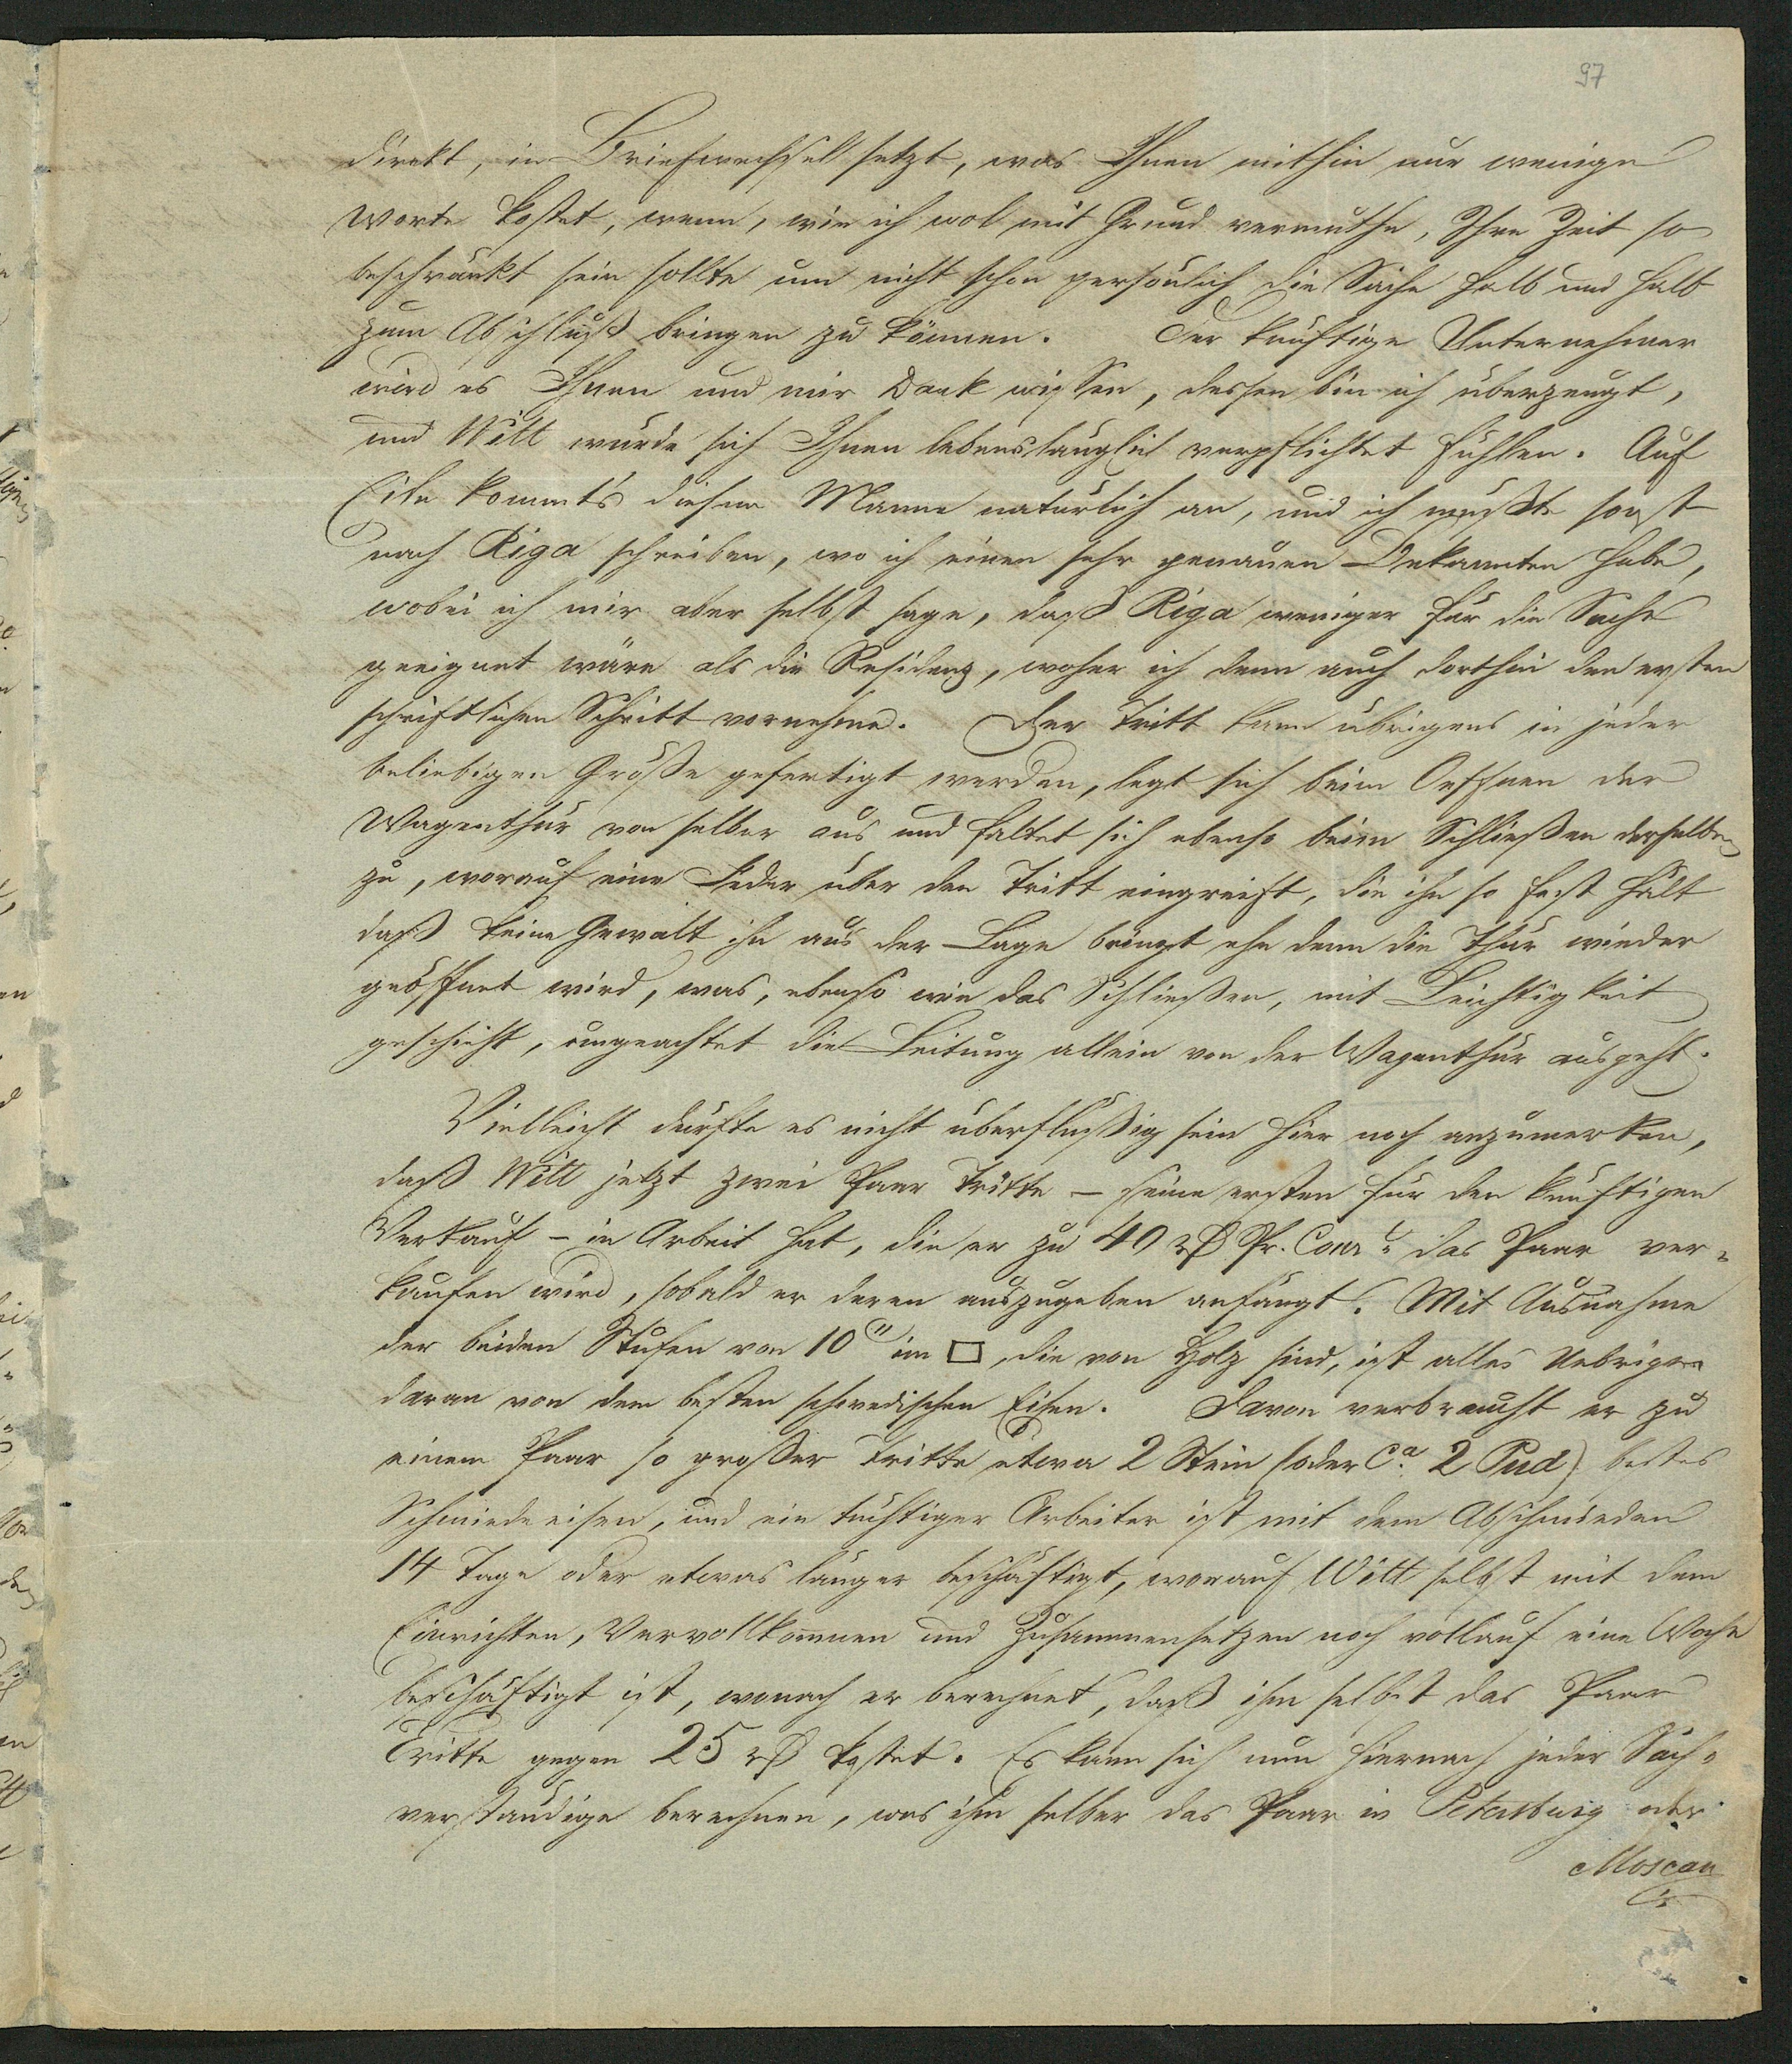 97
direkt, in Briefwechsel setzt, was Ihnen mithin nur wenige
Worte kostet, wenn, wie ich wol mit Grund vermuthe, Ihre Zeit so
beschränkt sein sollte um nicht schon persönlich die Sache halb und halb
zum Abschluß bringen zu können. Der künftige Unternehmer
wird es Ihnen und mir Dank wissen, dessen bin ich überzeugt,
und Witt würde sich Ihnen lebenslänglich verpflichtet fühlen. Auf
Eile kommt's diesem Manne natürlich an, und ich müßte sonst
nach Riga schreiben, wo ich einen sehr genauen Bekannten habe,
wobei ich mir aber selbst sage, daß Riga weniger für die Sache
geeignet wäre als die Residenz, woher ich denn auch dorthin den ersten
schriftlichen Schritt vornehme. Der Tritt kann übrigens in jeder
beliebigen Größe gefertigt werden, legt sich beim Oeffnen der
Wagenthür von selber aus und faltet sich ebenso beim Schließen derselben
zu, worauf eine Feder über den Tritt eingreift, die ihn so fest hält
daß keine Gewalt ihn aus der Lage bringt ehe denn die Thür wieder
geöffnet wird, was, ebenso wie das Schließen, mit Leichtigkeit
geschieht, ungeachtet die Leitung allein von der Wagenthür ausgeht.
Vielleicht dürfte es nicht überflüßig sein hier noch anzumerken,
daß Witt jetzt zwei Paar Tritte – seine ersten für den künftigen
Verkauf – in Arbeit hat, die er zu 40 rß Pr. Cour. das Paar ver-
kaufen wird, sobald er deren auszugeben anfängt. Mit Ausnahme
der beiden Stufen von 10" im □, die von Holz sind, ist alles Uebrige
daran von dem besten schwedischen Eisen. Davon verbraucht er zu
einem Paar so großer Tritte etwa 2 Stein (oder Ca. 2 Pud) bestes
Schmiedeeisen, und ein tüchtiger Arbeiter ist mit dem Abschmieden
14 Tage oder etwas länger beschäftigt, worauf Witt selbst mit dem
Einrichten, Vervollkommnen und Zusammensetzen noch vollauf eine Woche
beschäftigt ist, wonach er berechnet, daß ihm selbst das Paar
Tritte gegen 25 rß kostet. Es kann sich nun hiernach jeder Sach-
verständige berechnen, was ihm selber das Paar in Petersburg oder
Moscau